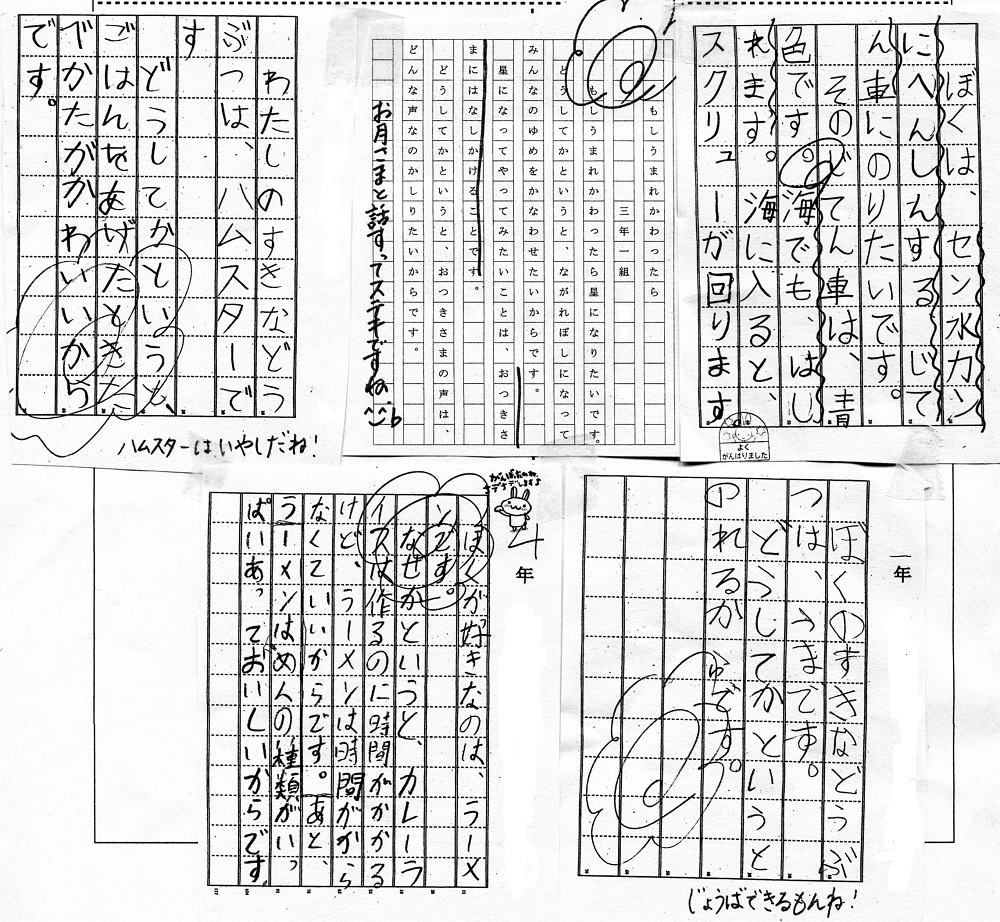 ぼくは、セン水カン
にへんしんするじて
ん車にのりたいです。
そのじてん車は、青
色です。海でも、はし
れます。海に入ると、
スクリューが回ります
よく
がんばりました
もしうまれかわったら
三年一組
もしうまれかわったら星になりたいです。
どうしてかというと、ながれぼしになって
みんなのゆめをかなわせたいからです。
星になってやってみたいことは、おつきさ
まにはなしかけることです。
どうしてかというと、おつきさまの声は、
どんな声なのかしりたいからです。
お月さまと話すってステキですね
わたしのすきなどう
ぶつは、ハムスターで
す
どうしてかというと、
ごはんをあげたときた
べかたがかわいいから
です。
ハムスターはいやしだね!
一年
ぼくのすきなどうぶ
つは、うまです。
どうしてかというと
のれるからです。
じょうばできるもんね!
4年
ぼくが好きなのは、ラーメ
ンです。
なぜかというと、カレーラ
イスは作るのに時間がかかる
けど、ラーメンは時間がかから
なくていいからです。あと、
ラーメンはめんの種類がいっ
ぱいあっておいしいからです。